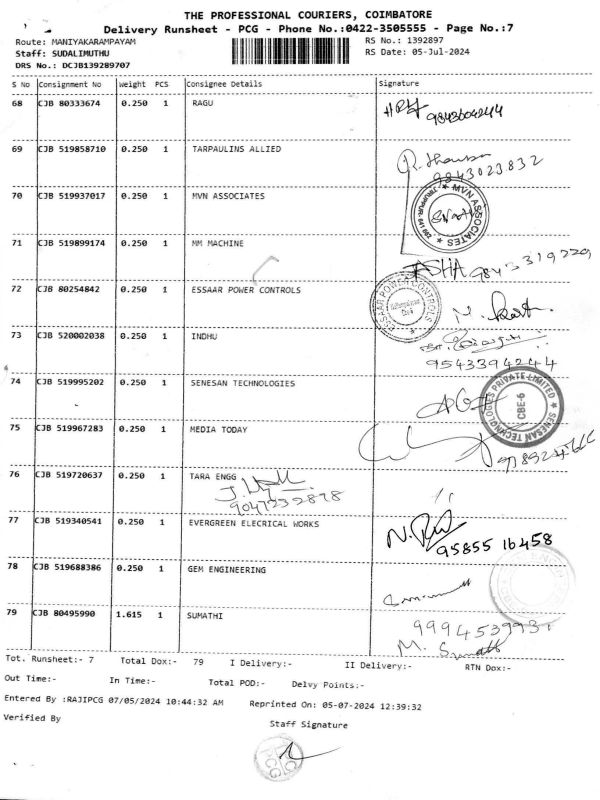 THE PROFESSIONAL COURIERS, COIMBATORE
Delivery Runsheet - PCG - Phone No.:0422-3505555 - Page No.:7
Route: MANIYAKARAMPAYAM
RS No.: 1392897
Staff: SUDALIMUTHU
RS Date: 05-Jul-2024
DRS No.: DCJB139289707
S No Consignment No Weight PCS Consignee Details Signature
68 CJB 80333674 0.250 1 RAGU
9843604244
69 CJB 519858710 0.250 1 TARPAULINS ALLIED
9843023832
70 CJB 519937017 0.250 1 MVN ASSOCIATES
MVN ASSOCIATES
71 CJB 519899174 0.250 1 MM MACHINE
ASHA 9843319229
72 CJB 80254842 0.250 1 ESSAAR POWER CONTROLS
ESSAAR POWER CONTROLS
73 CJB 520002038 0.250 1 INDHU
9543394244
74 CJB 519995202 0.250 1 SENESAN TECHNOLOGIES
SENESAN TECHNOLOGIES PRIVATE LIMITED
CBE-6
75 CJB 519967283 0.250 1 MEDIA TODAY
76 CJB 519720637 0.250 1 TARA ENGG
9047232878
77 CJB 519340541 0.250 1 EVERGREEN ELECRICAL WORKS
95855 16458
78 CJB 519688386 0.250 1 GEM ENGINEERING
79 CJB 80495990 1.615 1 SUMATHI
M.
Tot. Runsheet:- 7 Total Dox:- 79 I Delivery:- II Delivery:- RTN Dox:-
Out Time:- In Time:- Total POD:- Delvy Points:-
Entered By :RAJIPCG 07/05/2024 10:44:32 AM Reprinted On: 05-07-2024 12:39:32
Verified By
Staff Signature